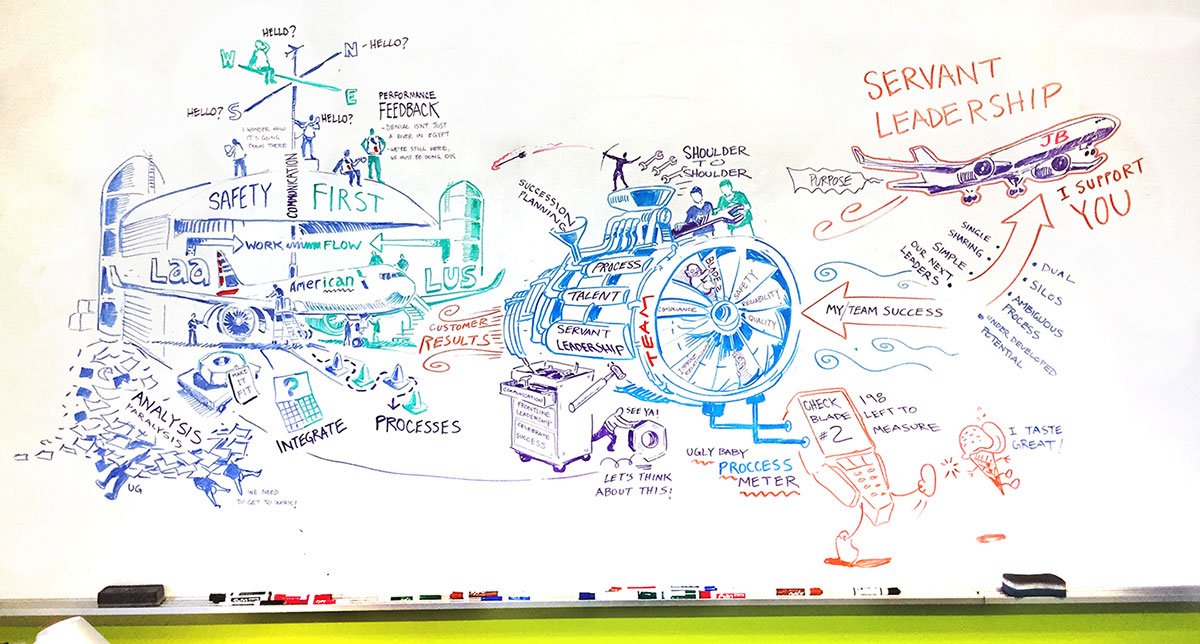 HELLO?
W
N - HELLO?
HELLO? S
E
HELLO?
I WONDER HOW
IT'S GOING
DOWN THERE
PERFORMANCE
FEEDBACK
- DENIAL ISN'T JUST
A RIVER IN EGYPT
- WE'RE STILL HERE,
WE MUST BE DOING OK
COMMUNICATION
SAFETY FIRST
WORK FLOW
Laa
American
LUS
CUSTOMER
RESULTS
ANALYSIS
PARALYSIS
MAKE
IT
FIT
?
INTEGRATE
PROCESSES
UG
WE NEED
TO GET TO WORK!
SUCCESSION
PLANNING
SHOULDER
TO
SHOULDER
PROCESS
TALENT
SERVANT
LEADERSHIP
TEAM
COMPLIANCE
SAFETY
RELIABILITY
QUALITY
COMMUNICATION
FRONTLINE
LEADERSHIP
CELEBRATE
SUCCESS
SEE YA!
LET'S THINK
ABOUT THIS!
UGLY BABY
PROCCESS
METER
CHECK
BLADE
#2
198
LEFT TO
MEASURE
I TASTE
GREAT!
MY TEAM SUCCESS
SERVANT
LEADERSHIP
JB
PURPOSE
I SUPPORT
YOU
SINGLE
SHARING
SIMPLE
OUR NEXT
LEADERS
• DUAL
• SILOS
• AMBIGUOUS
PROCESS
• UNDER DEVELOPED
POTENTIAL